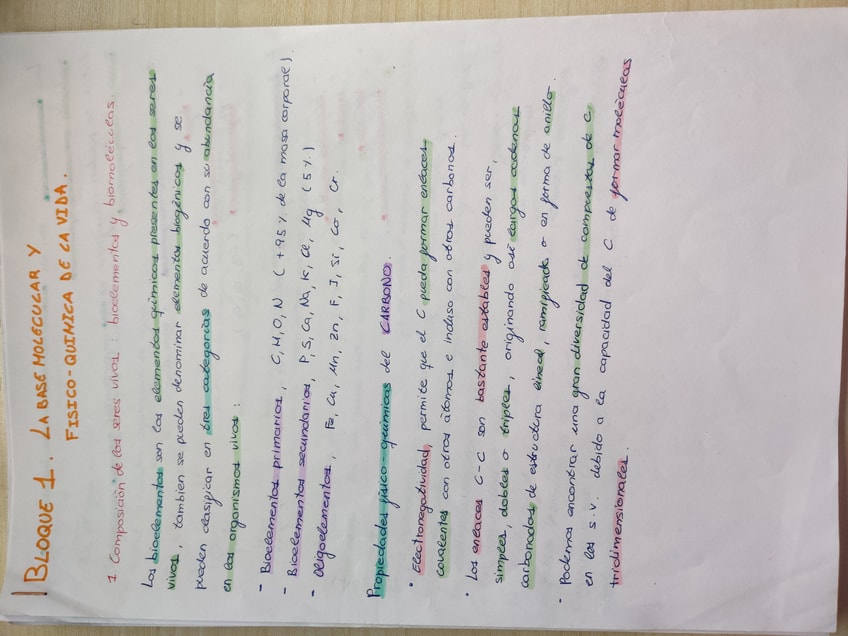 BLOQUE 1. LA BASE MOLECULAR Y
FISICO-QUIMICA DE LA VIDA.
1. Composición de los seres vivos: bioelementos y biomoléculas.
Los bioelementos son los elementos químicos presentes en los seres
vivos, también se pueden denominar elementos biogénicos y se
pueden clasificar en tres categorías de acuerdo con su abundancia
en los organismos vivos:
- Bioelementos primarios, C, H, O, N (+95% de la masa corporal).
- Bioelementos secundarios, P, S, Ca, Na, K, Cl, Mg (5%)
- Oligoelementos, Fe, Cu, Mn, Zn, F, I, Si, Co, Cr.
Propiedades físico-químicas del CARBONO.
• Electronegatividad, permite que el C pueda formar enlaces
covalentes con otros átomos e incluso con otros carbonos.
• Los enlaces C-C son bastante estables y pueden ser,
simples, dobles o triples, originando así largas cadenas
carbonadas de estructura lineal, ramificada o en forma de anillo.
• Podemos encontrar una gran diversidad de compuestos de C,
en los s.v. debido a la capacidad del C de formar moléculas
tridimensionales.